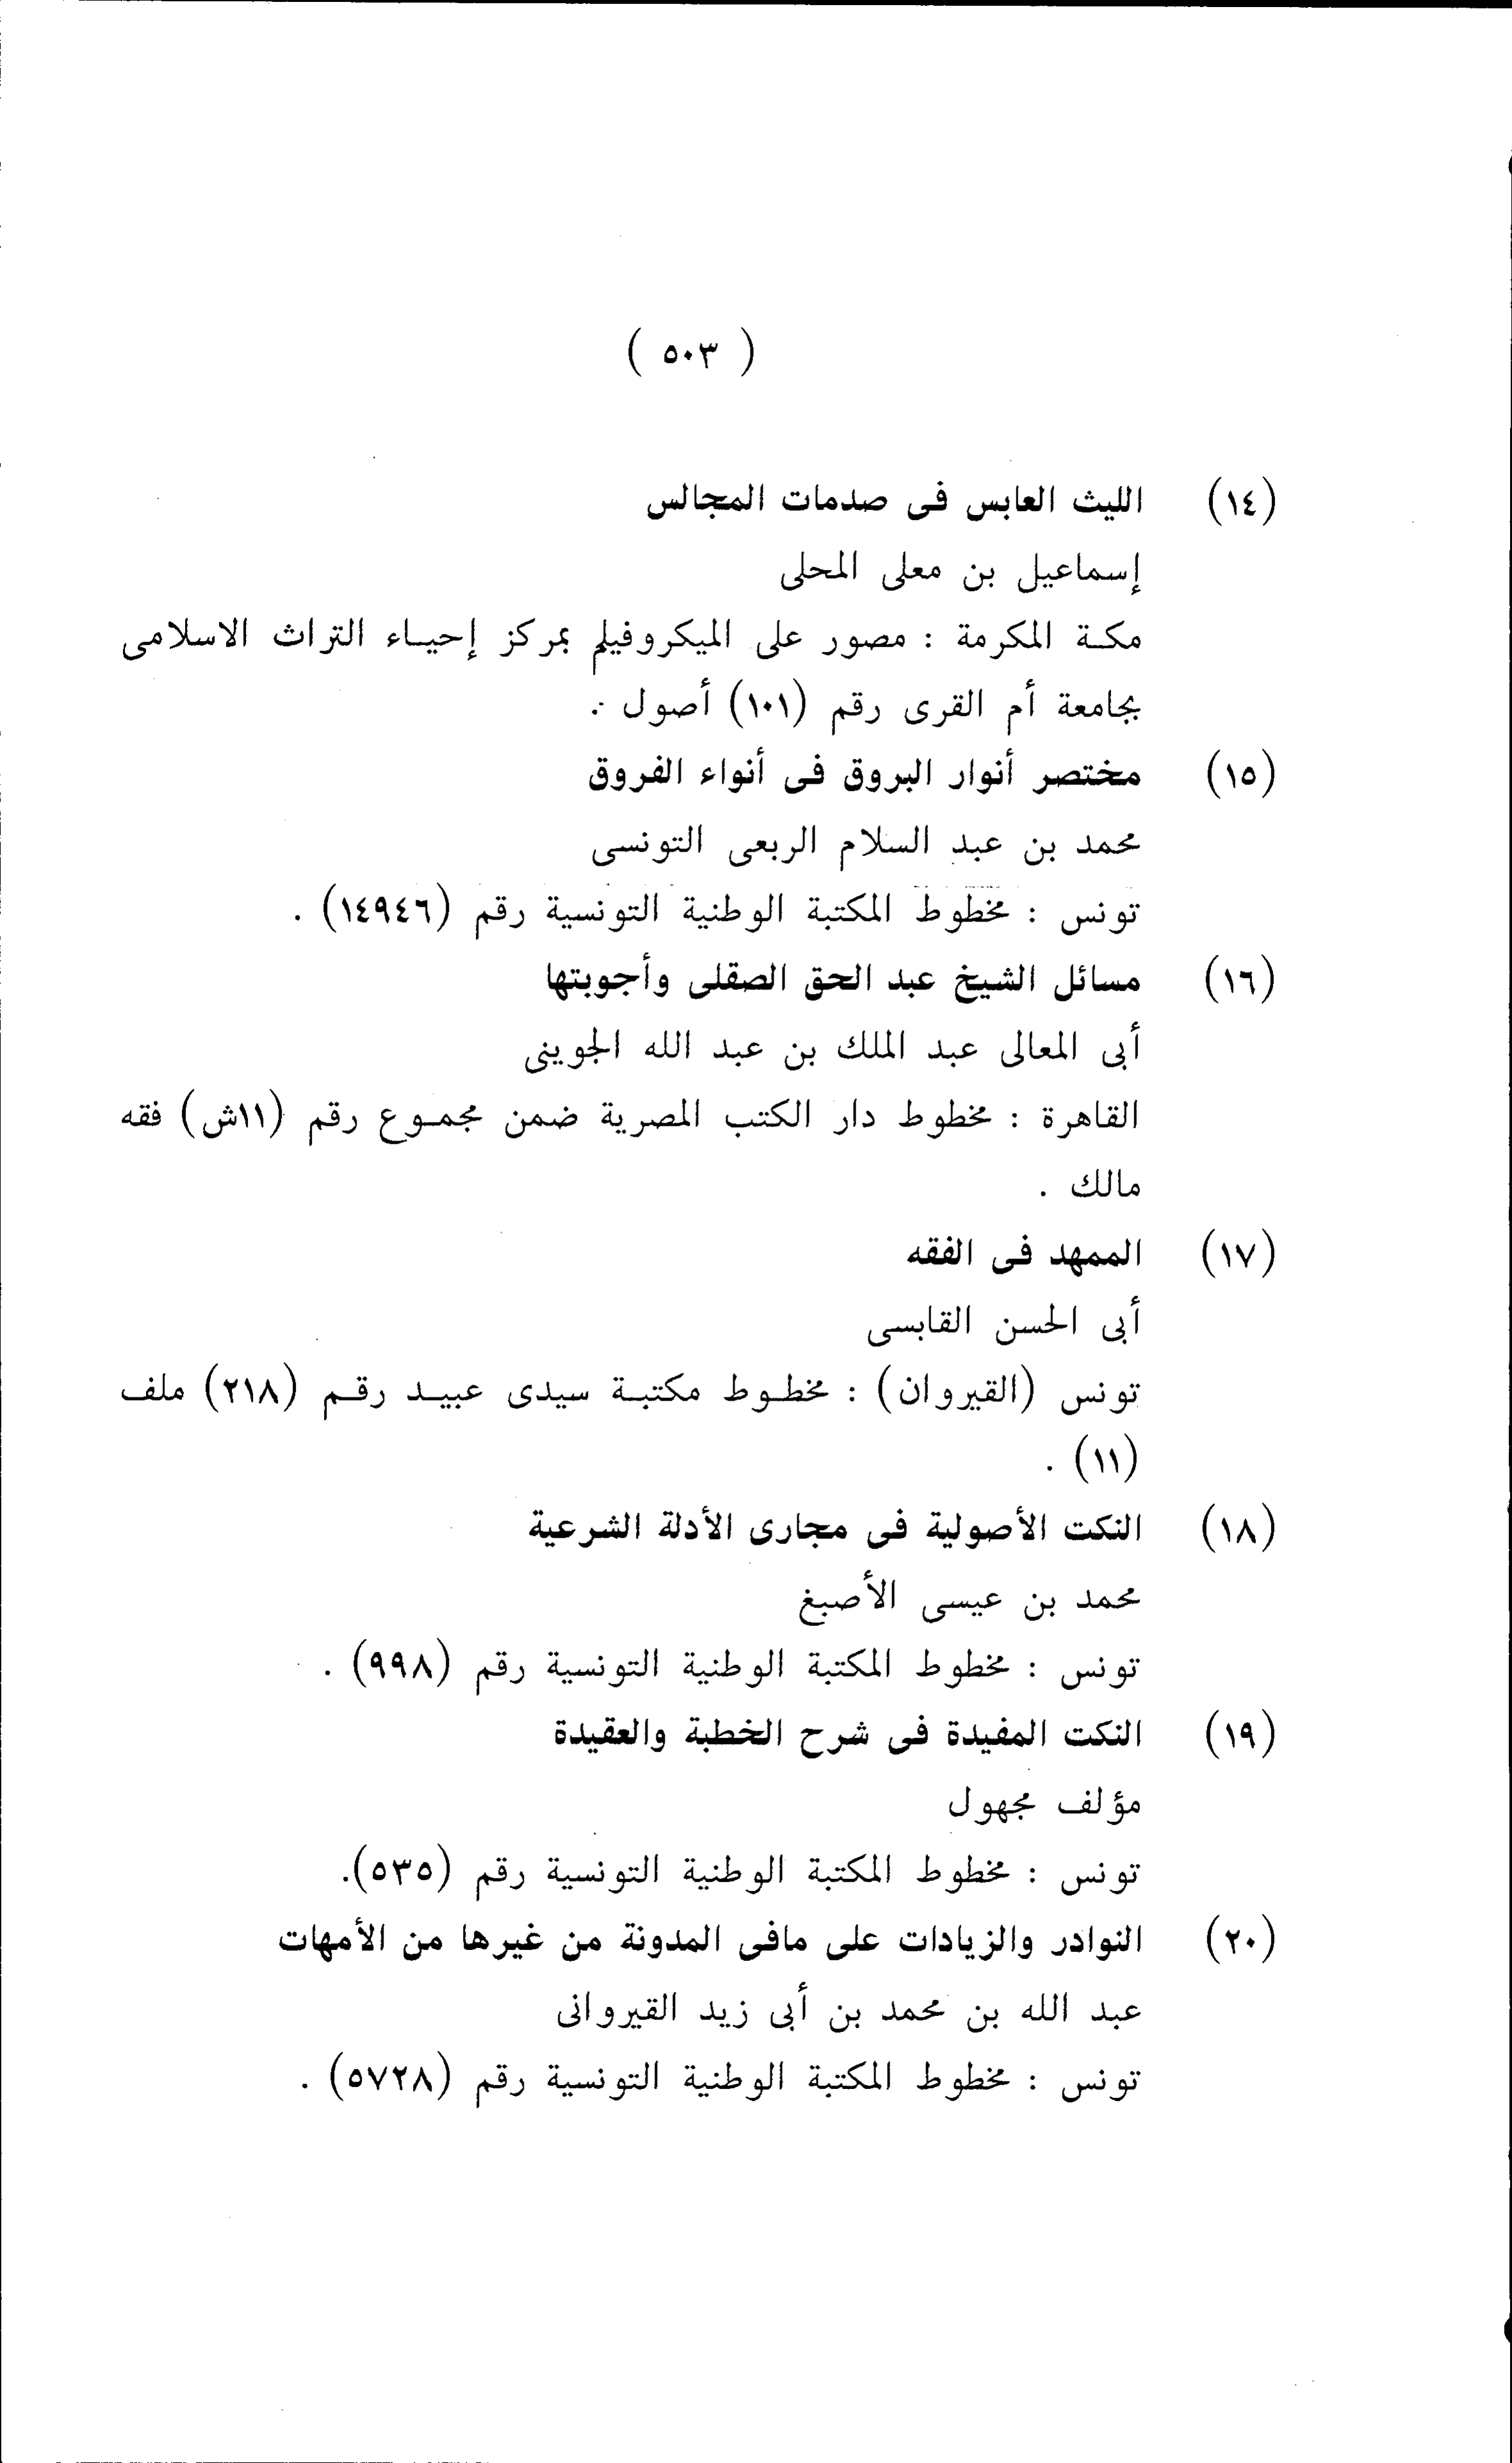 ( ٥٠٣ )
(١٤) الليث العابس فى صدمات المجالس
إسماعيل بن معلى المحلى
مكة المكرمة : مصور على الميكروفيلم بمركز إحياء التراث الاسلامى
بجامعة أم القرى رقم (١٠١) أصول .
(١٥) مختصر أنوار البروق فى أنواء الفروق
محمد بن عبد السلام الربعى التونسى
تونس : مخطوط المكتبة الوطنية التونسية رقم (١٤٩٤٦) .
(١٦) مسائل الشيخ عبد الحق الصقلى وأجوبتها
أبى المعالى عبد الملك بن عبد الله الجوينى
القاهرة : مخطوط دار الكتب المصرية ضمن مجموع رقم (١١ش) فقه
مالك .
(١٧) الممهد فى الفقه
أبى الحسن القابسى
تونس (القيروان) : مخطوط مكتبة سيدى عبيد رقم (٢١٨) ملف
(١١) .
(١٨) النكت الأصولية فى مجارى الأدلة الشرعية
محمد بن عيسى الأصبغ
تونس : مخطوط المكتبة الوطنية التونسية رقم (٩٩٨) .
(١٩) النكت المفيدة فى شرح الخطبة والعقيدة
مؤلف مجهول
تونس : مخطوط المكتبة الوطنية التونسية رقم (٥٣٥).
(٢٠) النوادر والزيادات على مافى المدونة من غيرها من الأمهات
عبد الله بن محمد بن أبى زيد القيروانى
تونس : مخطوط المكتبة الوطنية التونسية رقم (٥٧٢٨) .